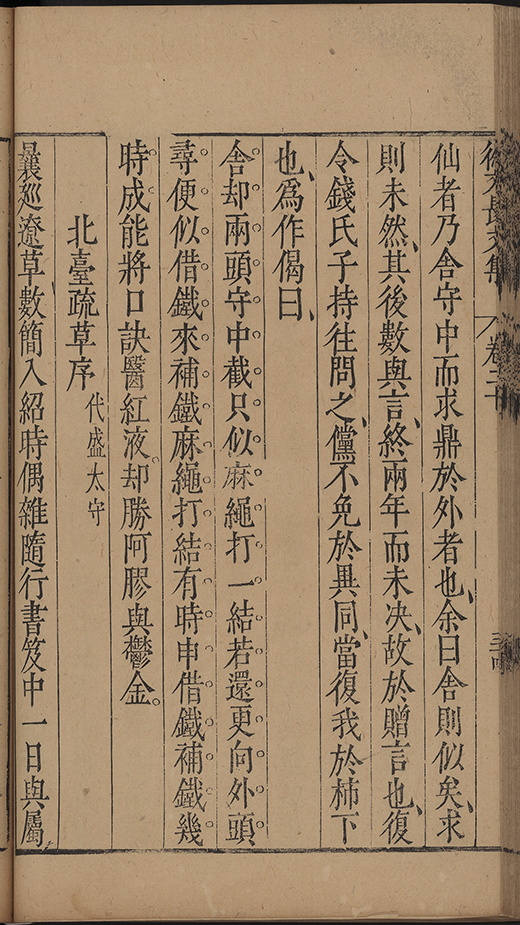 徐文長文集 卷二十
仙者乃舍守中而求鼎於外者也、余曰舍則似矣、求
則未然、其後數與言、終兩年而未决、故於贈言也、復
令錢氏子持往問之、儻不免於異同、當復我於柿下
也、爲作偈曰、
舍却兩頭守中截只似麻繩打一結若還更向外頭
尋便似借鐵來補鐵麻繩打結有時申借鐵補鐵幾
時成能將口訣醫紅液却勝阿膠與鬱金
北臺疏草序 代盛太守
曩廵遼草數簡入紹時偶雜隨行書笈中一日與屬